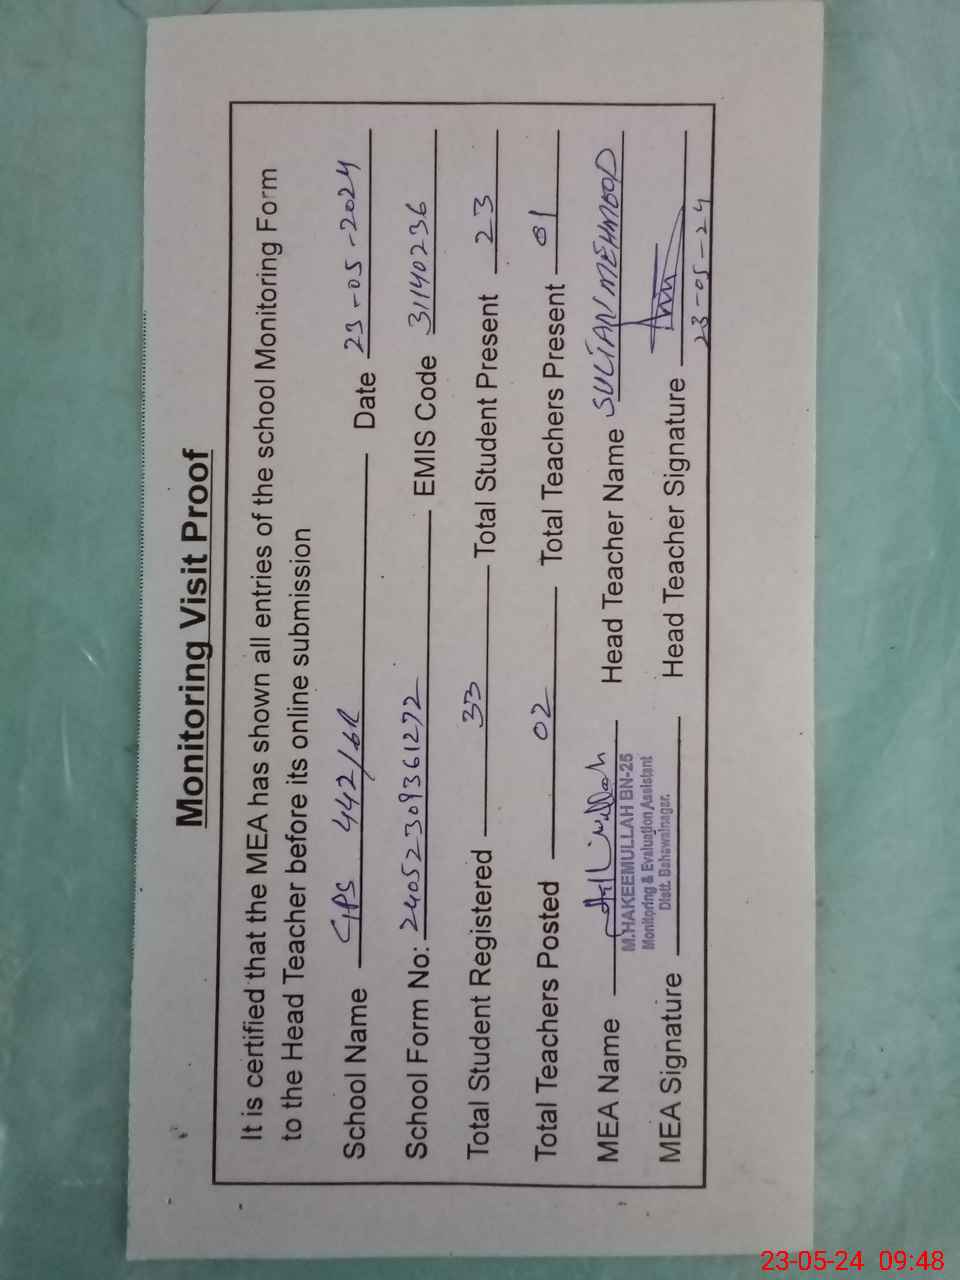 Monitoring Visit Proof
It is certified that the MEA has shown all entries of the school Monitoring Form
to the Head Teacher before its online submission
School Name GPS 442/6R Date 23-05-2024
School Form No: 24052309361272 EMIS Code 31140236
Total Student Registered 33 Total Student Present 23
Total Teachers Posted 02 Total Teachers Present 01
MEA Name Head Teacher Name SULTAN MEHMOOD
M.HAKEEMULLAH BN-25
Monitoring & Evaluation Assistant
Distt. Bahawalnagar.
MEA Signature Head Teacher Signature
23-05-24
23-05-24 09:48